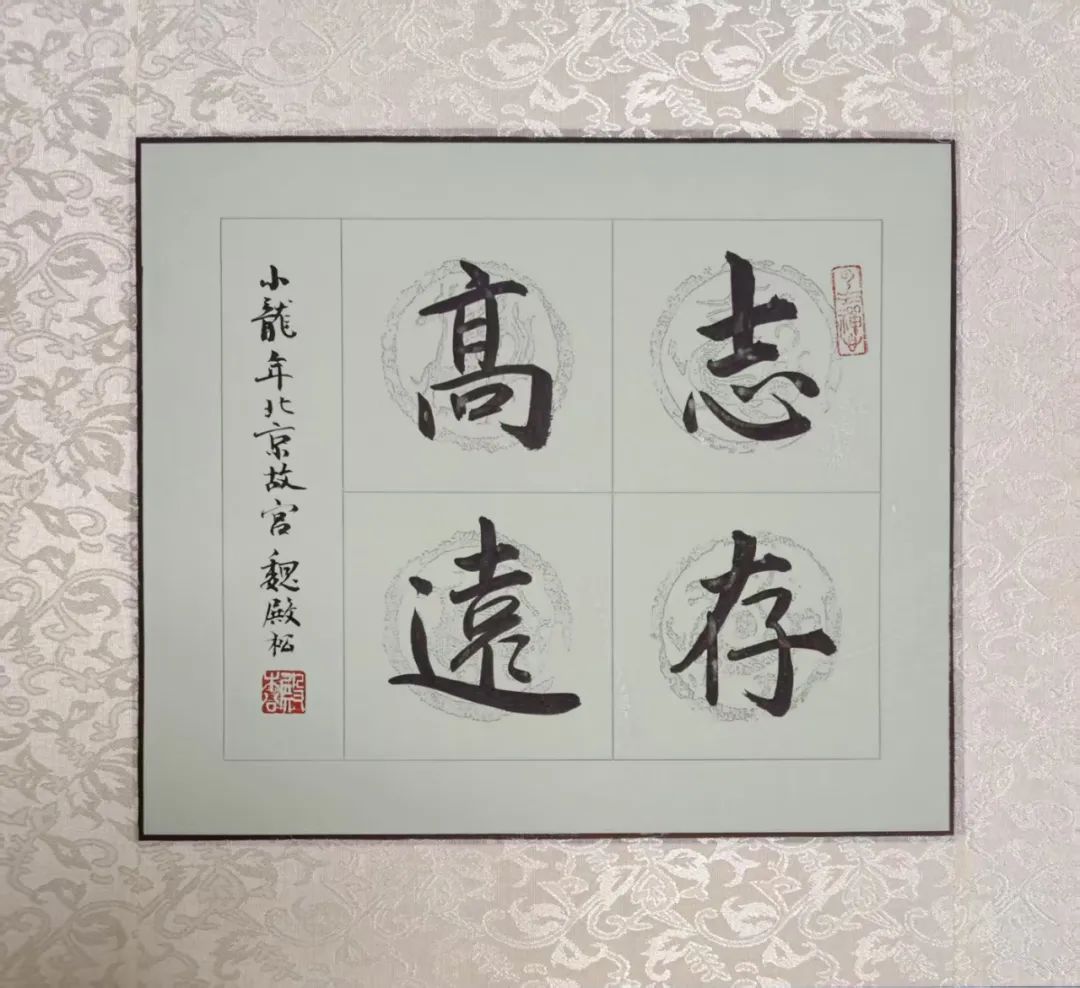 志存
高遠
小龍年北京故宫魏殿松